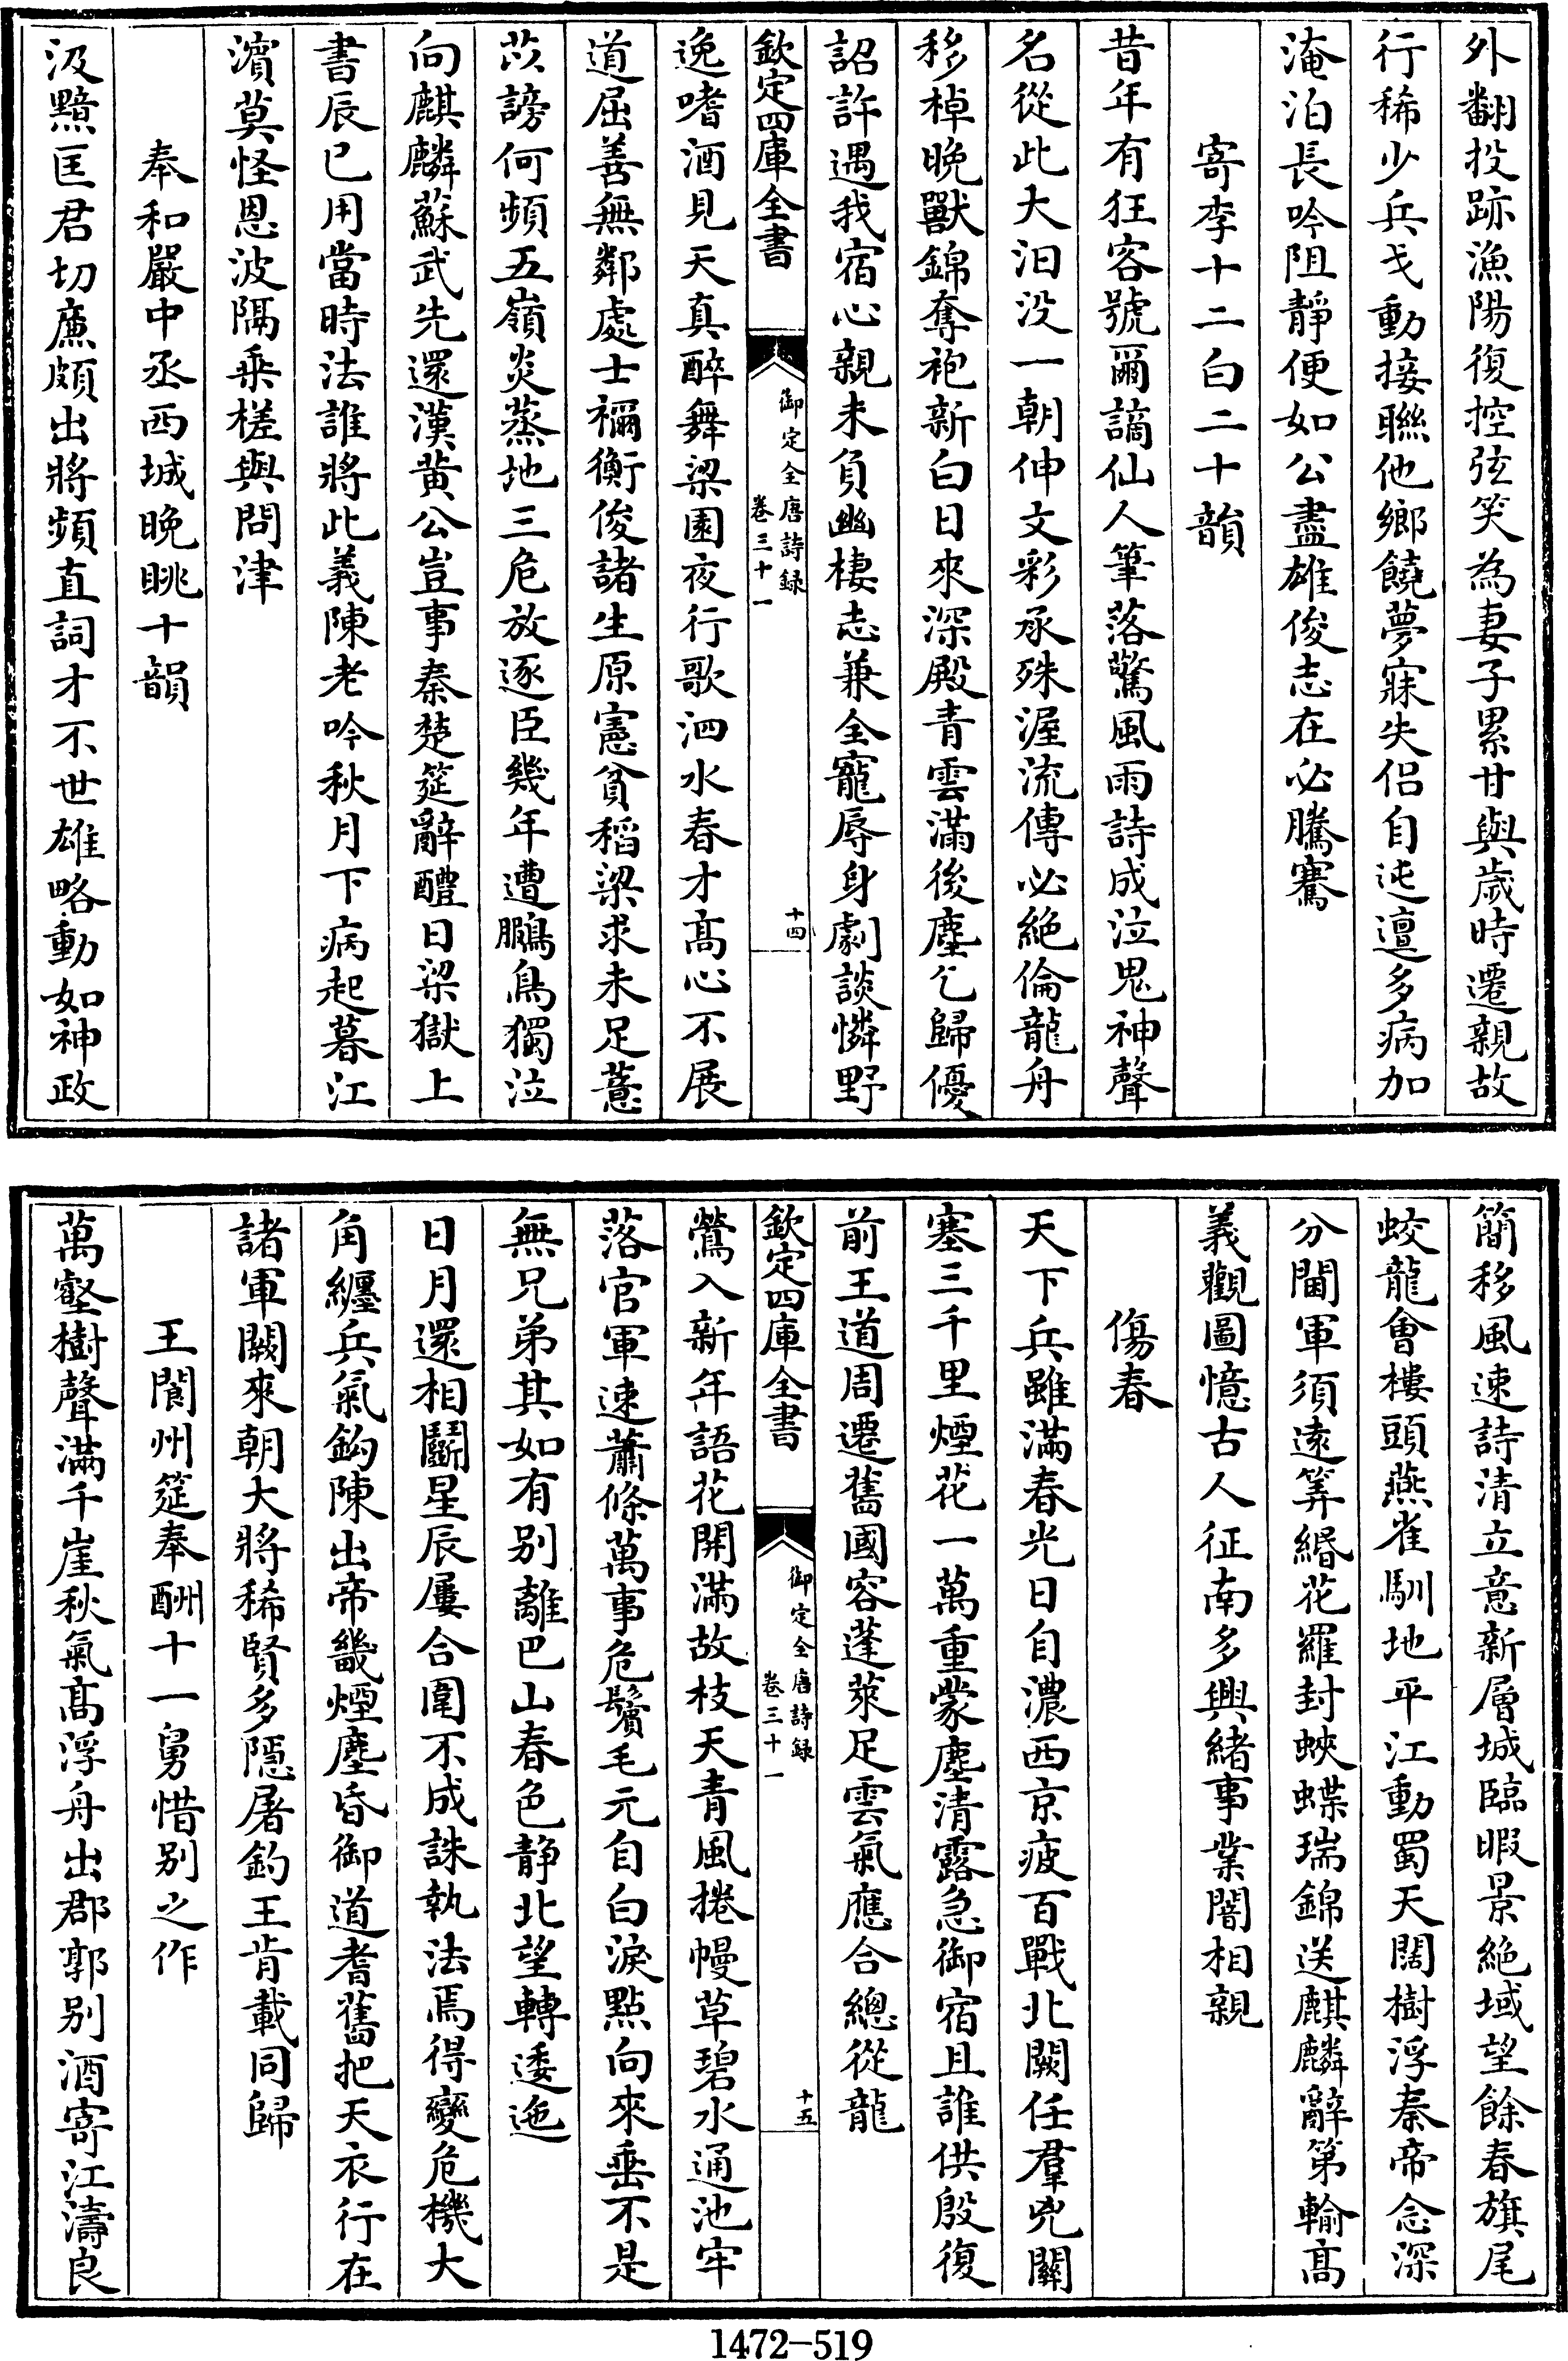 外翻投跡漁陽復控弦笑為妻子累甘與歲時遷親故
行稀少兵戈動接聯他鄉饒夢寐失侣自迍邅多病加
淹泊長吟阻靜便如公盡雄俊志在必騰騫
寄李十二白二十韻
昔年有狂客號爾謫仙人筆落驚風雨詩成泣鬼神聲
名從此大汩没一朝伸文彩承殊渥流傳必絶倫龍舟
移棹晚獸錦奪袍新白日來深殿青雲滿後塵乞歸優
詔許遇我宿心親未負幽棲志兼全寵辱身劇談憐野
欽定四庫全書
御定全唐詩録
卷三十一
十四
逸嗜酒見天真醉舞梁園夜行歌泗水春才高心不展
道屈善無鄰處士禰衡俊諸生原憲貧稻粱求未足薏
苡謗何頻五嶺炎蒸地三危放逐臣幾年遭鵩鳥獨泣
向麒麟蘇武先還漢黄公豈事秦楚筵辭醴日梁獄上
書辰已用當時法誰將此義陳老吟秋月下病起暮江
濵莫怪恩波隔乗槎與問津
奉和嚴中丞西城晚眺十韻
汲黯匡君切廉頗出將頻直詞才不世雄略動如神政
簡移風速詩清立意新層城臨暇景絶域望餘春旗尾
蛟龍會樓頭燕雀馴地平江動蜀天闊樹浮秦帝念深
分閫軍須遠筭緡花羅封蛺蝶瑞錦送麒麟辭第輸高
義觀圖憶古人征南多興緒事業闇相親
傷春
天下兵雖滿春光日自濃西京疲百戰北闕任羣兇關
塞三千里煙花一萬重蒙塵清露急御宿且誰供殷復
前王道周遷舊國容蓬萊足雲氣應合總從龍
欽定四庫全書
御定全唐詩録
卷三十一
十五
鶯入新年語花開滿故枝天青風捲幔草碧水通池牢
落官軍速蕭條萬事危鬢毛元自白淚點向來垂不是
無兄弟其如有别離巴山春色静北望轉逶迤
日月還相鬭星辰屢合圍不成誅執法焉得變危機大
角纒兵氣鈎陳出帝畿煙塵昏御道耆舊把天衣行在
諸軍闕來朝大將稀賢多隱屠釣王肯載同歸
王閬州筵奉酬十一舅惜别之作
萬壑樹聲滿千崖秋氣高浮舟出郡郭别酒寄江濤良
1472-519